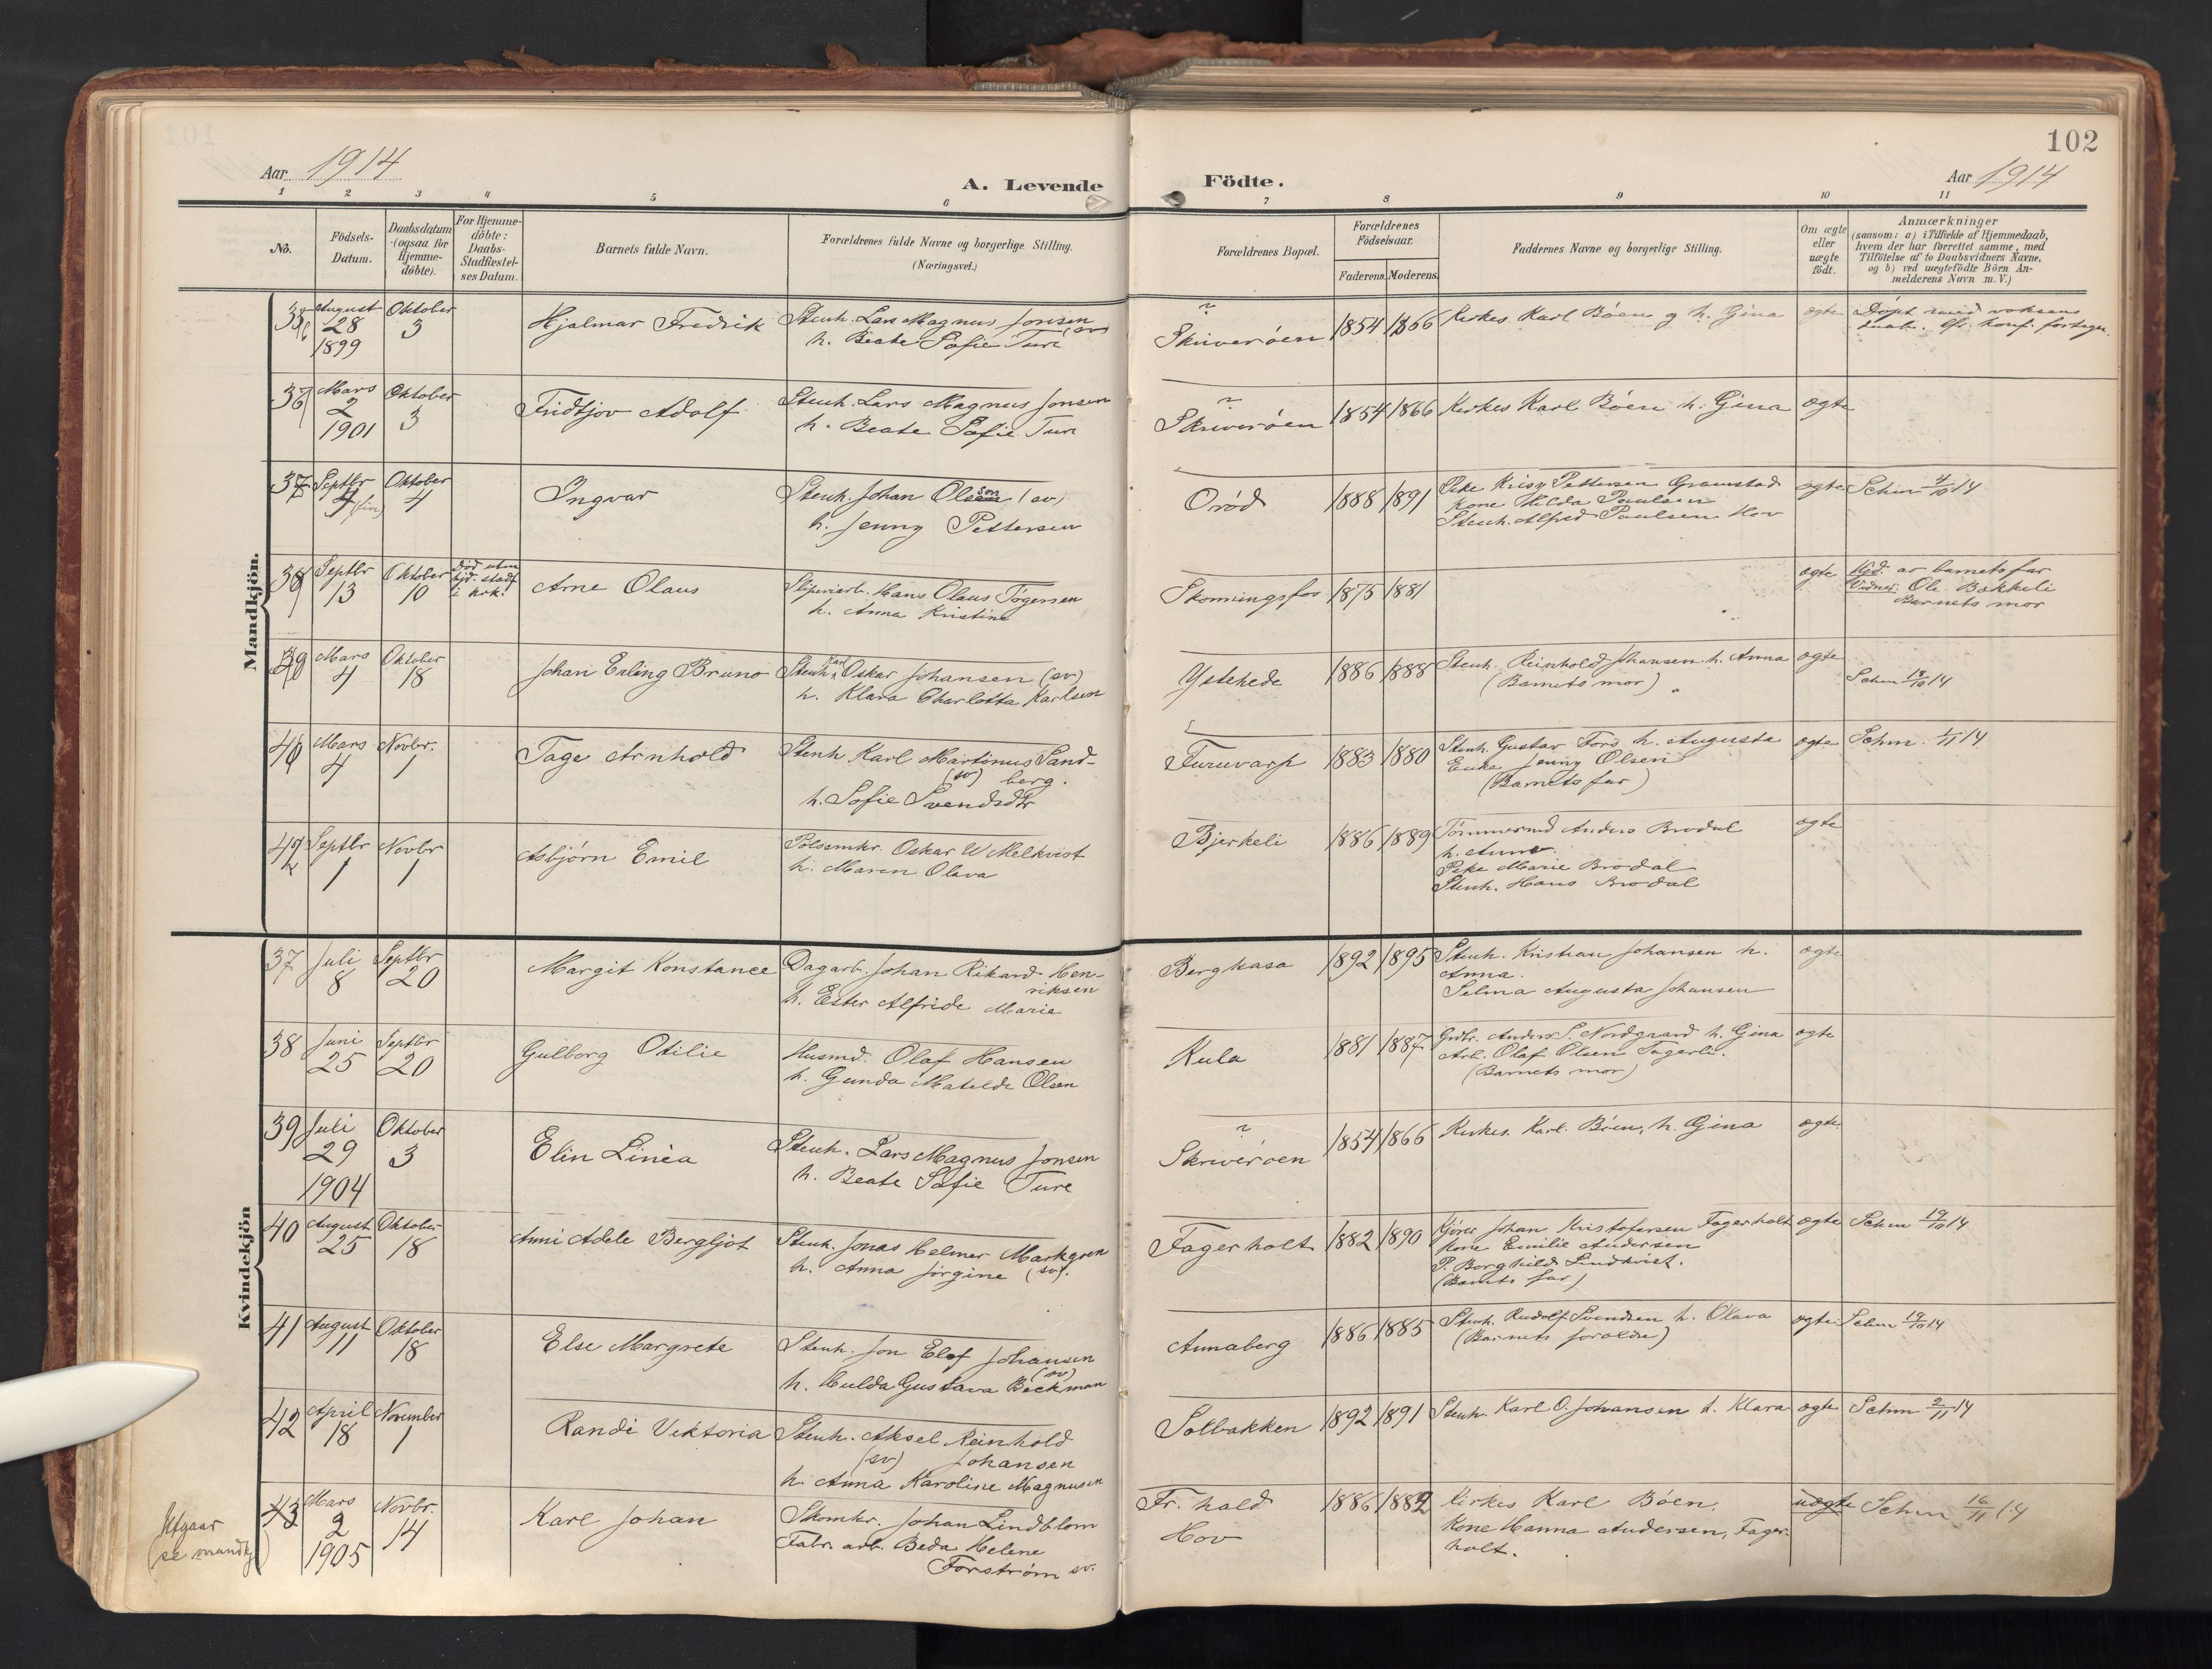 102
Aar 1914
A. Levende
Födte.
Aar 1914
1 2 3 4 5 6 7 8 9 10 11
No.
Födsels-
Datum.
Daabsdatum
(ogsaa for
Hjemme-
döbte).
For Hjemme-
döbte:
Daabs-
Stadfæstel-
ses Datum.
Barnets fulde Navn.
Forældrenes fulde Navne og borgerlige Stilling.
(Næringsvei.)
Forældrenes Bopæl.
Forældrenes
Födselsaar.
Faderens. Moderens.
Faddernes Navne og borgerlige Stilling.
Om ægte
eller
uægte
födt.
Anmærkninger
(saasom: a) i Tilfælde af Hjemmedaab,
hvem der har forrettet samme, med
Tilföielse af to Daabsvidners Navne.
og b) ved uægtefödte Börn An-
melderens Navn m.V.)
Mandkjön.
August 28 1899
Oktober 3
Hjalmar Fredrik
Stenh. Lars Magnus Jonsen (sv)
h. Beate Sofie Ture
Skriverøen
1854 1866
Kirkes Karl Bøen og h. Gina
ægte
Døpt med voksens
36
Mars 2 1901
Oktober 3
Fridtjov Adolf
Stenh. Lars Magnus Jonsen
h. Beate Sofie Ture
Skriverøen
1854 1866
Kirkes Karl Bøen h. Gina
ægte
37
Septbr 4 (fire)
Oktober 4
Ingvar
Stenh. Johan Olsson (sv)
h. Jenny Pettersen
Orød
1888 1891
Pike Kristy Pettersen Grønstad
Kone Hilda Paulsen
Stenh. Alfred Paulsen Hov
ægte
Schm 4/10 14
38
Septbr 13
Oktober 10
Død uten
hjd. stadf
i kirk.
Arne Olaus
Sliperiarb. Hans Olaus Tøgersen
h. Anna Kristine
Skonningsfos
1875 1881
ægte
Hjd. av barnets far
Vidner: Ole Bakkeli
Barnets mor
39
Mars 4
Oktober 18
Johan Erling Bruno
Stenh. Karl Oskar Johansen (sv)
h. Klara Charlotta Karlsen
Ystehede
1886 1888
Stenh. Reinhold Johansen h. Anna
(Barnets mor)
ægte
Schm 18/10 14
40
Mars 4
Novbr. 1
Tage Arnhold
Stenh Karl Martinus Sand-
(sv) berg.
h. Sofie Svendsdtr
Furuvarp
1883 1880
Stenh. Gustav Fors h. Augusta
Enke Jenny Olsen
(Barnets far)
ægte
Schm. 1/11 14
42
Septbr 1
Novbr 1
Asbjørn Emil
Pølsemkr. Oskar W Melkvist
h. Maren Olava
Bjerkeli
1886 1889
Tømmermd Anders Brodal
h. Anne
Pike Marie Brodal
Stenh. Hans Brodal
ægte
Kvindekjön
37
Juli 8
Septbr 20
Margit Konstance
Dagarb. Johan Rikard Hen-
riksen
h. Ester Alfride Marie
Bergkasa
1892 1895
Stenh. Kristian Johansen h.
Anna.
Selma Augusta Johansen
ægte
38
Juni 25
Septbr 20
Gulborg Otilie
Husmd. Olaf Hansen
h. Gunda Matilde Olsen
Kula
1881 1887
Grdbr. Anders S. Nordgaard h. Gina
Arb. Olaf Olsen Fagerli.
(Barnets mor)
ægte
39
Juli 29 1904
Oktober 3
Elin Linéa
Stenh. Lars Magnus Jonsen
h. Beate Sofie Ture
Skriverøen
1854 1866
Kirkes. Karl Bøen, h. Gina
ægte
40
August 25
Oktober 18
Anni Adele Bergljot
Stenh. Jonas Helmer Markgren
h. Anna Jørgine (sv).
Fagerholt
1882 1890
Kjører Johan Kristofersen Fagerholt
Kone Emilie Andersen
P. Borghild Lindkvist.
(Barnets far)
ægte
Schm 19/10 14
41
August 11
Oktober 18
Else Margrete
Stenh. Jon Elof Johansen
(sv)
h. Hulda Gustava Beckman
Annaberg
1886 1885
Stenh. Rudolf Svendsen h. Olava
(Barnets foreldre)
ægte
Schm 19/10 14
42
April 18
November 1
Randi Viktoria
Stenh. Aksel Reinhold
(sv) Johansen
h. Anna Karoline Magnusen
Solbakken
1892 1891
Stenh. Karl O. Johansen h. Klara
ægte
Schm 2/11 14
Utgaar
(se mandkj)
43
Mars 2 1905
Novbr. 14
Karl Johan
Skomkr. Johan Lindblom
Fabr. arb. Beda Helene
Forstrøm sv.
Fr. hald
Hov
1886 1882
Kirkes Karl Bøen.
Kone Hanna Andersen, Fager-
holt.
uægte
Schm 16/11 14